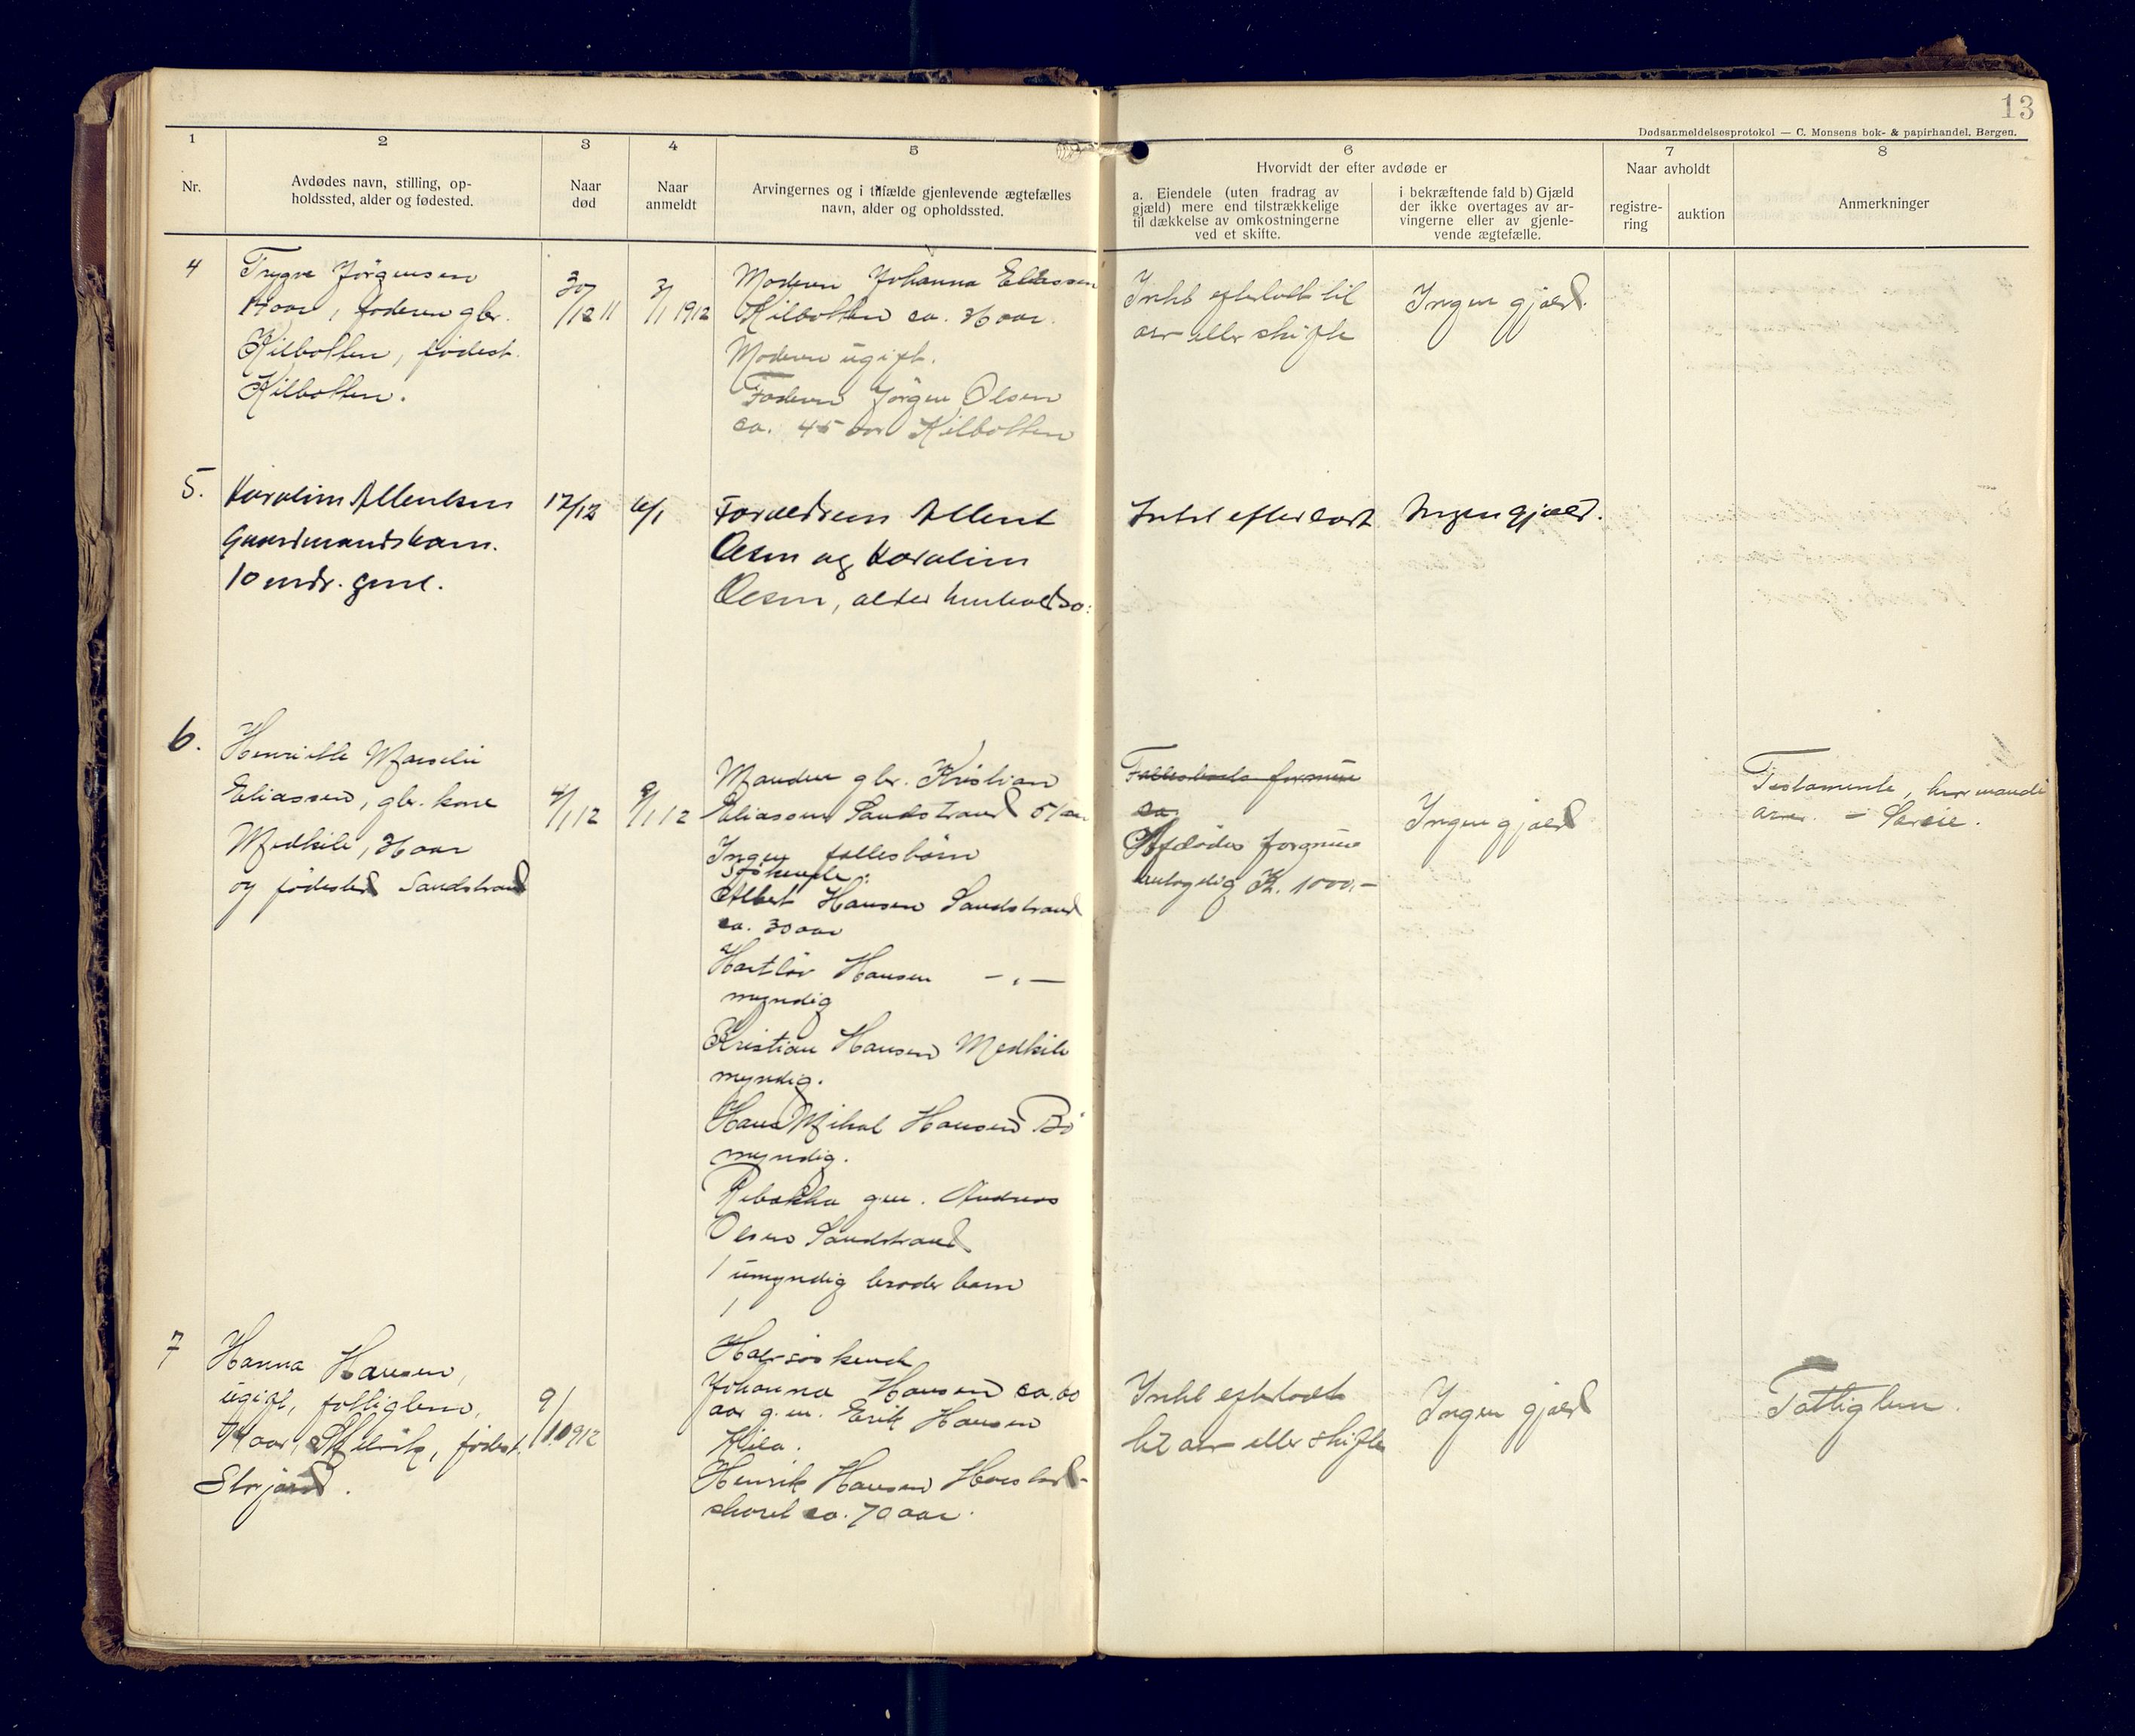 13
Dødsanmeldelsesprotokol — C. Monsens bok- & papirhandel, Bergen.
1
2
3
4
5
6
7
8
Nr.
Avdødes navn, stilling, op-
holdssted, alder og fødested.
Naar
død
Naar
anmeldt
Arvingernes og i tilfælde gjenlevende ægtefælles
navn, alder og opholdssted.
Hvorvidt der efter avdøde er
a. Eiendele (uten fradrag av
gjæld) mere end tilstrækkelige
til dækkelse av omkostningerne
ved et skifte.
i bekræftende fald b) Gjæld
der ikke overtages av ar-
vingerne eller av gjenle-
vende ægtefælle.
Naar avholdt
registre-
ring
auktion
Anmerkninger
4
Trygve Jörgensen
aar, faderen gbr.
Kilbotten, födest.
Kilbotten.
30/12 11
3/1 1912
Moderen Johanna Eliassen
Kilbotten ca. aar.
Moderen ugift.
Faderen Jörgen Olsen
ca. 45 aar Kilbotten
Intet efterladt til
arv eller skifte
Ingen gjæld.
5.
Karoline Allentsen
Gaardmandsbarn.
10 mdr. gml.
17/12
6/1
Forældrene Allent
Olsen og Karoline
Olsen, alder henholdsv:
Intet efterladt
Ingen gjæld.
6.
Henriette Marselie
Eliassen, gbr. kone
Medkile, aar
og födested Sandstrand
4/1 12
9/1 12
Manden gbr. Kristian
Eliassen Sandstrand 51 aar
Ingen fællesbörn
Söskende:
Albert Hansen Sandstrand
ca. 30 aar
Hartlöv Hansen — " —
myndig
Kristian Hansen Medkile
myndig.
Hans Mikal Hansen Bö
myndig.
Rebekka gm. Andreas
Olsen Sandstrand
1 umyndig broder barn
Fællesboets formue
ca.
Afdödes formue
antagelig Kr. 1000.-
Ingen gjæld
Testamente, hvor mand
arver. - Særeie.
7
Hanna Hansen,
ugift, fattiglem,
aar, födest.
Storjord.
9/1 1912
Halvsöskende
Johanna Hansen ca. 60
aar g.m. Erik Hansen
Kila.
Henrik Hansen
ca. 70 aar.
Intet efterladt
til arv eller skifte
Ingen gjæld
Fattiglem.